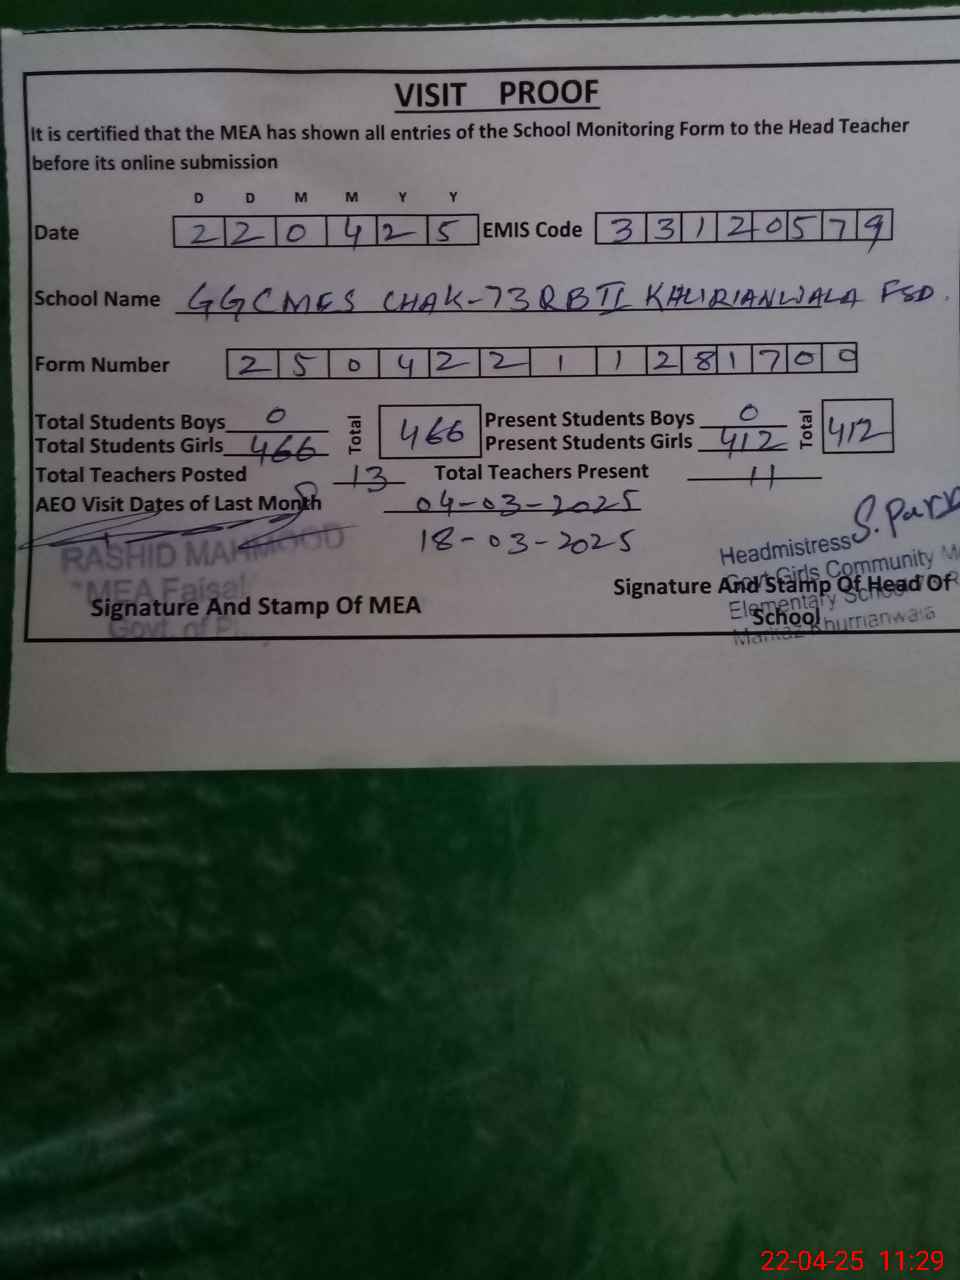 VISIT PROOF
It is certified that the MEA has shown all entries of the School Monitoring Form to the Head Teacher
before its online submission
D D M M Y Y
Date 2 2 0 4 2 5 EMIS Code 3 3 1 2 0 5 7 9
School Name GGCMES CHAK-73RB II KHURIANWALA FSD.
Form Number 2 5 0 4 2 2 1 1 2 8 1 7 0 9
Total Students Boys 0 Total 466 Present Students Boys 0 Total 412
Total Students Girls 466 Present Students Girls 412
Total Teachers Posted 13 Total Teachers Present 11
AEO Visit Dates of Last Month 04-03-2025
18-03-2025
RASHID MAHMOOD
MEA Faisal
Govt. of
Signature And Stamp Of MEA
Headmistress
Govt Girls Community
Elementary School
Markaz Khurrianwala
Signature And Stamp Of Head Of
School
22-04-25 11:29